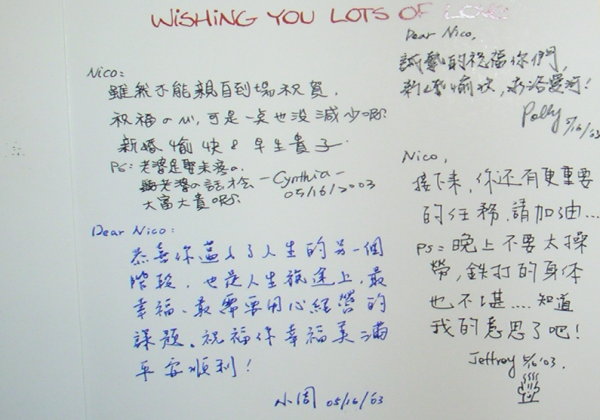 WISHING YOU LOTS OF LOVE
Nico:
雖然不能親自到場祝賀,
祝福の心,可是一点也没減少喔
新婚愉快&早生貴子.
PS:老婆是娶来疼の
聽老婆の話才会
大富大貴喔 -Cynthia-
05/16/2003
Dear Nico:
恭喜你邁入了人生的另一個
階段,也是人生旅途上,最
幸福、最需要用心經營的
課題、祝福你幸福美滿
平安順利!
小周 05/16/'03
Dear Nico,
誠摯的祝福你們,
新婚愉快,永浴愛河!
Polly 5/16/03
Nico,
接下来,你还有更重要
的任務,請加油...
PS:晚上不要太操
勞,鉄打的身体
也不堪....知道
我的意思了吧!
Jeffrey 5/16 '03.